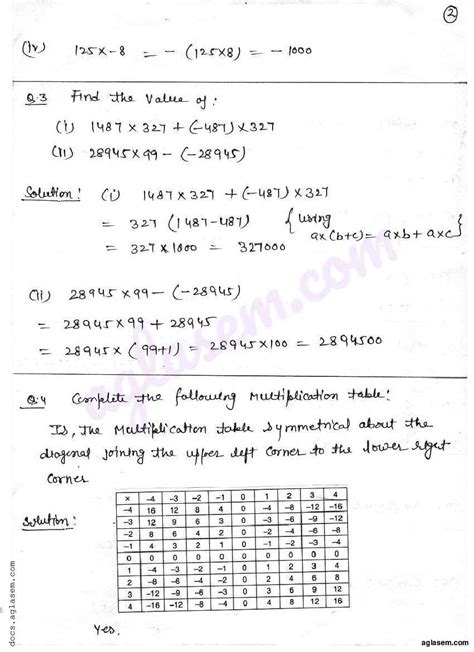 2
(iv) 125 x -8 = - (125x8) = - 1000
Q.3 Find the value of:
(i) 1487 x 327 + (-487) x 327
(ii) 28945 x 99 - (-28945)
Solution: (i) 1487 x 327 + (-487) x 327
= 327 (1487-487) { using
= 327 x 1000 = 327000 ax(b+c) = axb + axc }
(ii) 28945 x 99 - (-28945)
= 28945 x 99 + 28945
= 28945 x (99+1) = 28945 x 100 = 2894500
Q.4 Complete the following multiplication table:
Is, The Multiplication table symmetrical about the
diagonal joining the upper left corner to the lower right
corner
Solution:
x -4 -3 -2 -1 0 1 2 3 4
-4 16 12 8 4 0 -4 -8 -12 -16
-3 12 9 6 3 0 -3 -6 -9 -12
-2 8 6 4 2 0 -2 -4 -6 -8
-1 4 3 2 1 0 -1 -2 -3 -4
0 0 0 0 0 0 0 0 0 0
1 -4 -3 -2 -1 0 1 2 3 4
2 -8 -6 -4 -2 0 2 4 6 8
3 -12 -9 -6 -3 0 3 6 9 12
4 -16 -12 -8 -4 0 4 8 12 16
Yes.
aglasem.com
docs.aglasem.com
aglasem.com